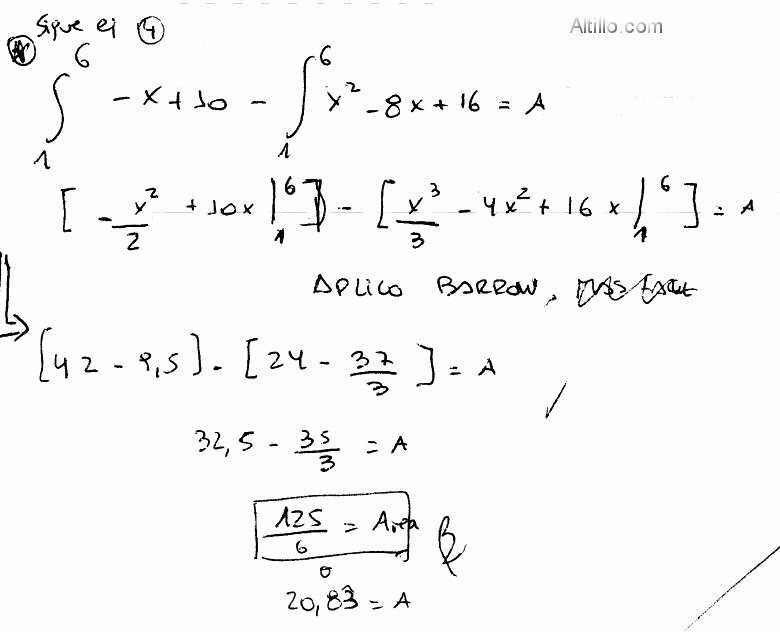 Sigue ej 4
Altillo.com
∫₁⁶ -x+10 - ∫₁⁶ x² - 8x + 16 = A
[ -x²/2 + 10x |₁⁶ ] - [ x³/3 - 4x² + 16x |₁⁶ ] = A
APLICO BARROW,
[42 - 9,5] - [24 - 37/3] = A
32,5 - 35/3 = A
125/6 = Area
o
20,83 = A